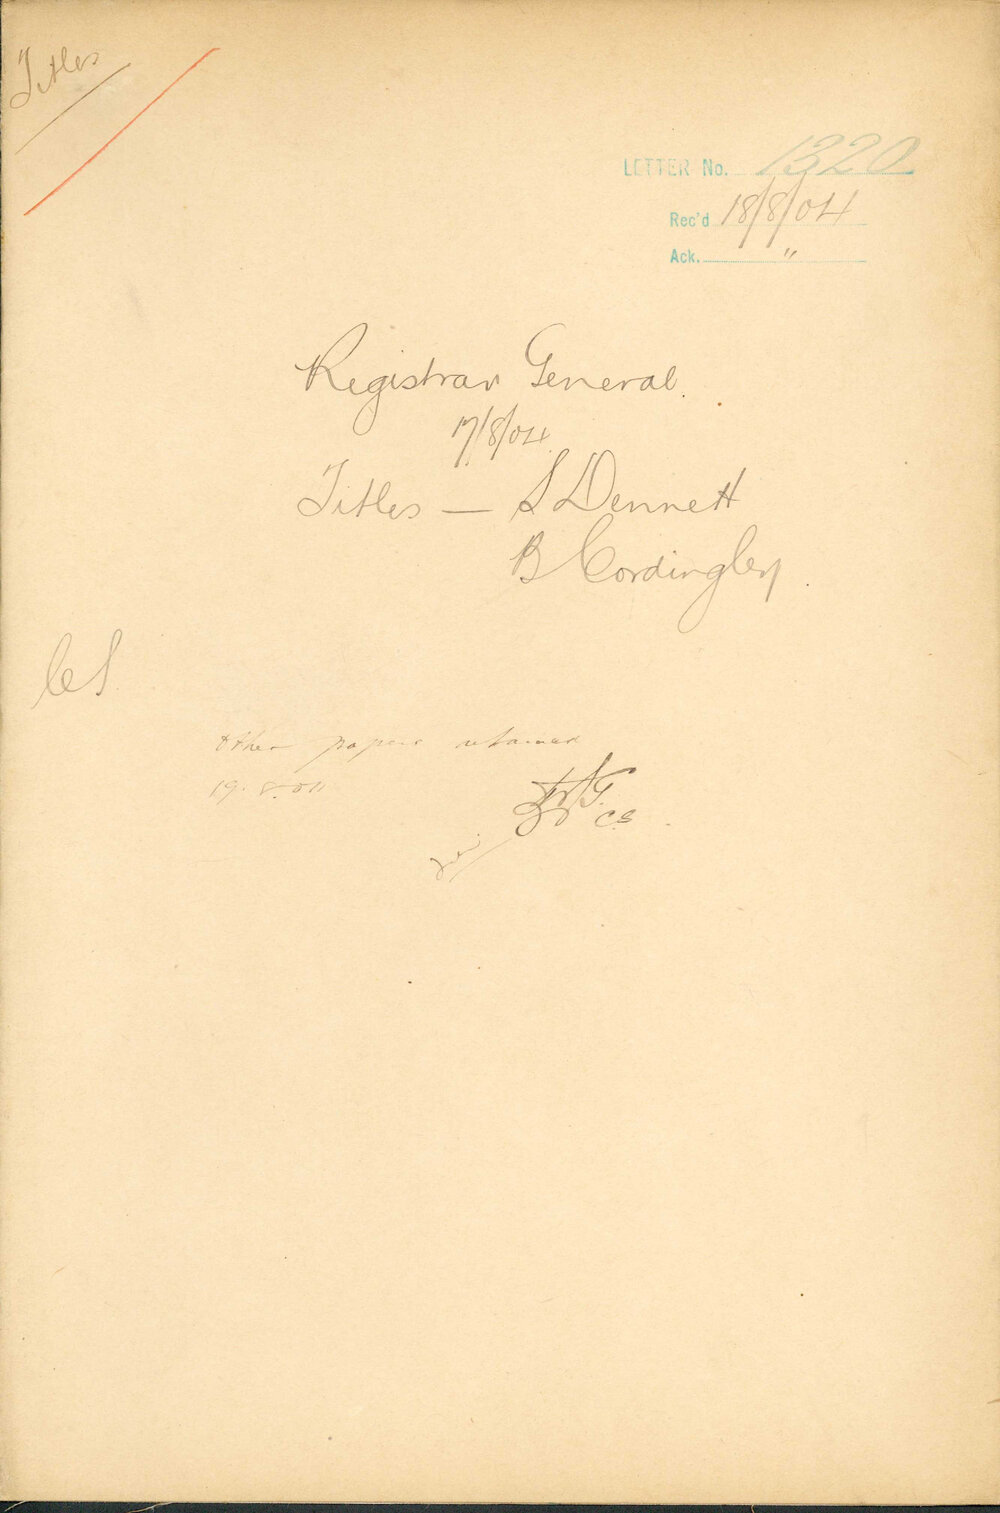 Titles
LETTER No. 1320
Rec'd 18/8/04
Ack. "
Registrar General.
17/8/04
Titles — S Dennett
B Cordingley.
CS
Other papers returned
19.8.04
CS